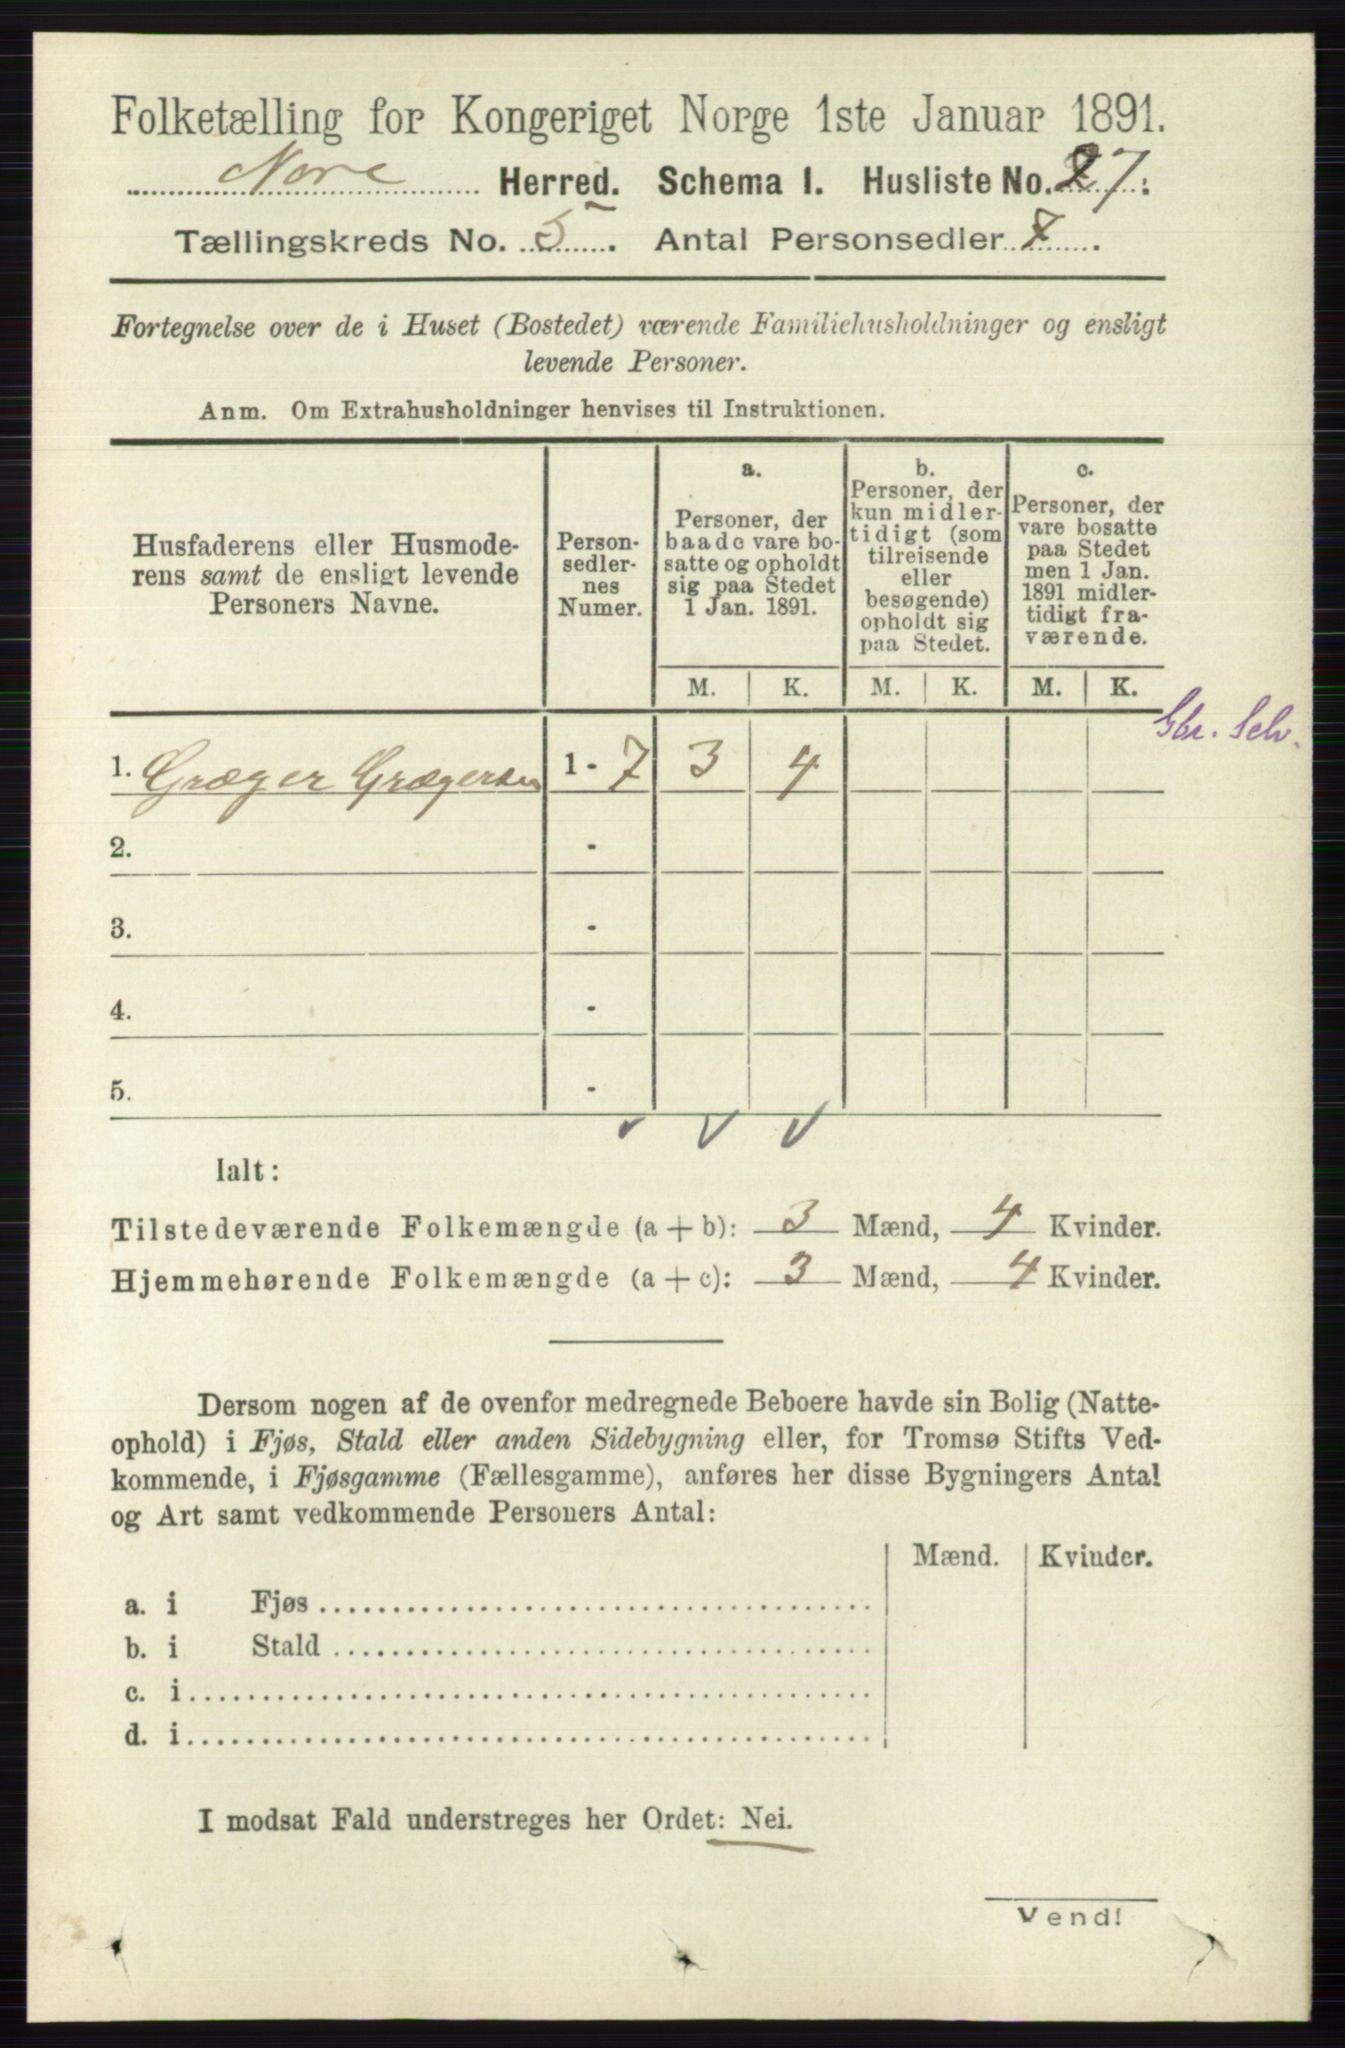 Folketælling for Kongeriget Norge 1ste Januar 1891.
Nore Herred. Schema I. Husliste No. 27.
Tællingskreds No. 5. Antal Personsedler 7.
Fortegnelse over de i Huset (Bostedet) værende Familiehusholdninger og ensligt
levende Personer.
Anm. Om Extrahusholdninger henvises til Instruktionen.
Husfaderens eller Husmode-
rens samt de ensligt levende
Personers Navne.
Person-
sedler-
nes
Numer.
a.
Personer, der
baade vare bo-
satte og opholdt
sig paa Stedet
1 Jan. 1891.
b.
Personer, der
kun midler-
tidigt (som
tilreisende
eller
besøgende)
opholdt sig
paa Stedet.
c.
Personer, der
vare bosatte
paa Stedet
men 1 Jan.
1891 midler-
tidigt fra-
værende.
M. K. M. K. M. K.
Gbr. Selv.
1. Græger Grægersen 1 - 7 3 4
2. -
3. -
4. -
5. -
Ialt:
Tilstedeværende Folkemængde (a + b): 3 Mænd, 4 Kvinder.
Hjemmehørende Folkemængde (a + c): 3 Mænd, 4 Kvinder.
Dersom nogen af de ovenfor medregnede Beboere havde sin Bolig (Natte-
ophold) i Fjøs, Stald eller anden Sidebygning eller, for Tromsø Stifts Ved-
kommende, i Fjøsgamme (Fællesgamme), anføres her disse Bygningers Antal
og Art samt vedkommende Personers Antal:
Mænd. Kvinder.
a. i Fjøs
b. i Stald
c. i
d. i
I modsat Fald understreges her Ordet: Nei.
Vend!